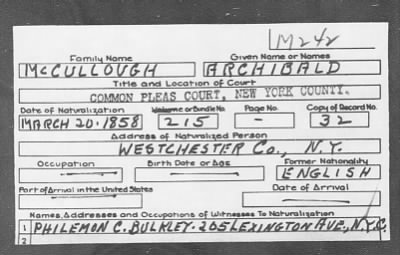 M242
Family Name Given Name or Names
McCULLOUGH ARCHIBALD
Title and Location of Court
COMMON PLEAS COURT, NEW YORK COUNTY.
Date of Naturalization Volume or Bundle No. Page No. Copy of Record No.
MARCH 20·1858 215 - 32
Address of Naturalized Person
WESTCHESTER Co., N.Y.
Occupation Birth Date or Age Former Nationality
ENGLISH
Port of Arrival in the United States Date of Arrival
Names, Addresses and Occupations of Witnesses To Naturalization
1 PHILEMON C. BULKLEY·205 LEXINGTON AVE., N.Y.C.
2